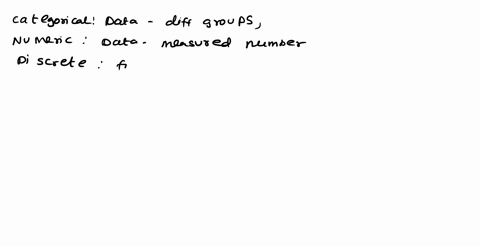 categorical: Data - diff groups,
Numeric : Data - measured number
Discrete : f